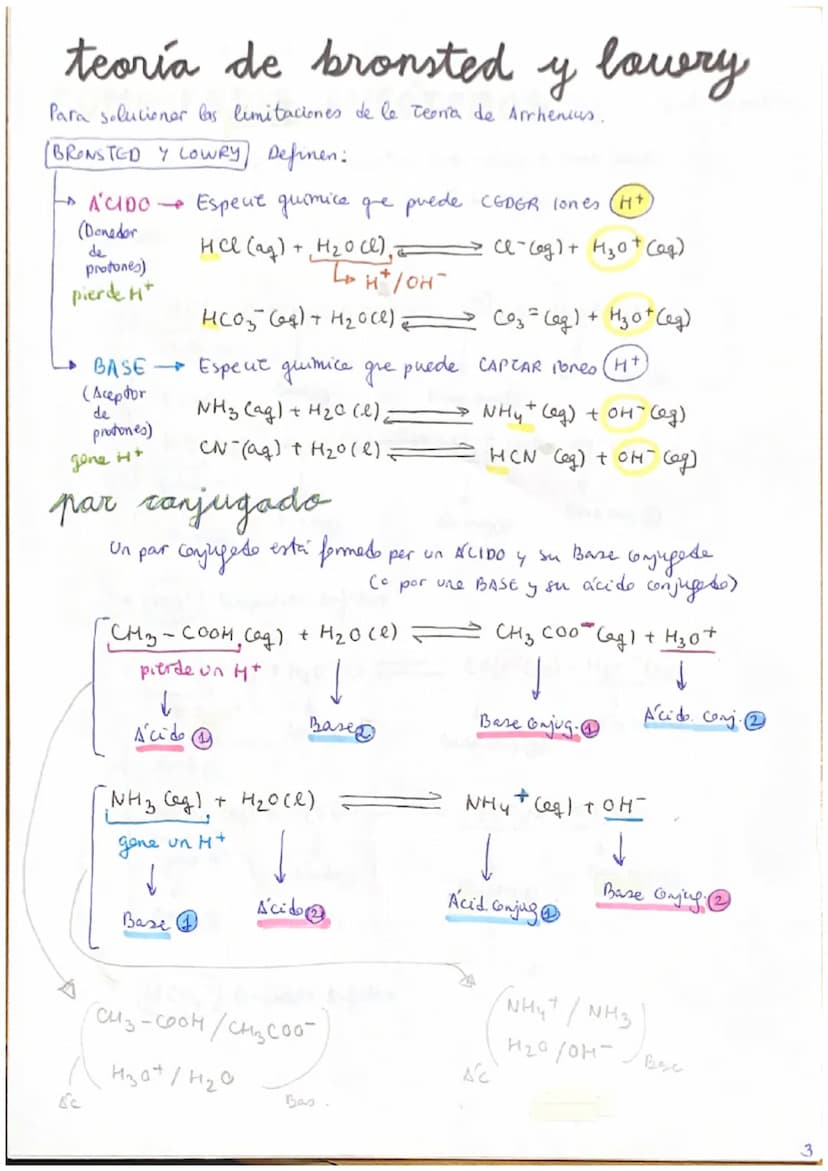 teoría de bronsted y lowry
Para solucionar las limitaciones de la Teoría de Arrhenius.
BRONSTED Y LOWRY Definen:
ÁCIDO → Especie química que puede CEDER iones H⁺
(Donador de protones)
pierde H⁺
HCl (aq) + H₂O (l) ⇌ Cl⁻ (aq) + H₃O⁺ (aq)
↳ H⁺/OH⁻
HCO₃⁻ (aq) + H₂O (l) ⇌ CO₃⁼ (aq) + H₃O⁺ (aq)
BASE → Especie química que puede CAPTAR iones H⁺
(Aceptor de protones)
gana H⁺
NH₃ (aq) + H₂O (l) ⇌ NH₄⁺ (aq) + OH⁻ (aq)
CN⁻ (aq) + H₂O (l) ⇌ HCN (aq) + OH⁻ (aq)
par conjugado
Un par conjugado está formado por un ÁCIDO y su Base conjugada
(o por una BASE y su ácido conjugado)
CH₃-COOH (aq) + H₂O (l) ⇌ CH₃COO⁻ (aq) + H₃O⁺
pierde un H⁺
Ácido 1 Base 2 Base Conjug. 1 Ácido. Conj. 2
NH₃ (aq) + H₂O (l) ⇌ NH₄⁺ (aq) + OH⁻
gana un H⁺
Base 1 Ácido 2 Ácid. Conjug 1 Base Conjug. 2
CH₃-COOH / CH₃COO⁻
H₃O⁺ / H₂O
Ác Bas.
NH₄⁺ / NH₃
H₂O / OH⁻
Ác Base
3